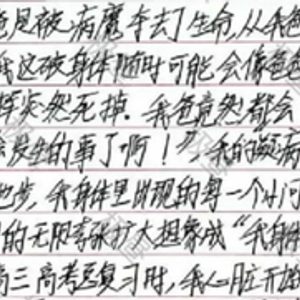 爸是被病魔夺去了生命,从我爸
我这破身体随时可能会像爸爸
突然死掉.我爸竟然都会
发生的事了啊!",我的疑病
地步,我身体里出现的每一个小问
的无限夸张扩大想象成“我身体
高三高考总复习时,我心脏开始